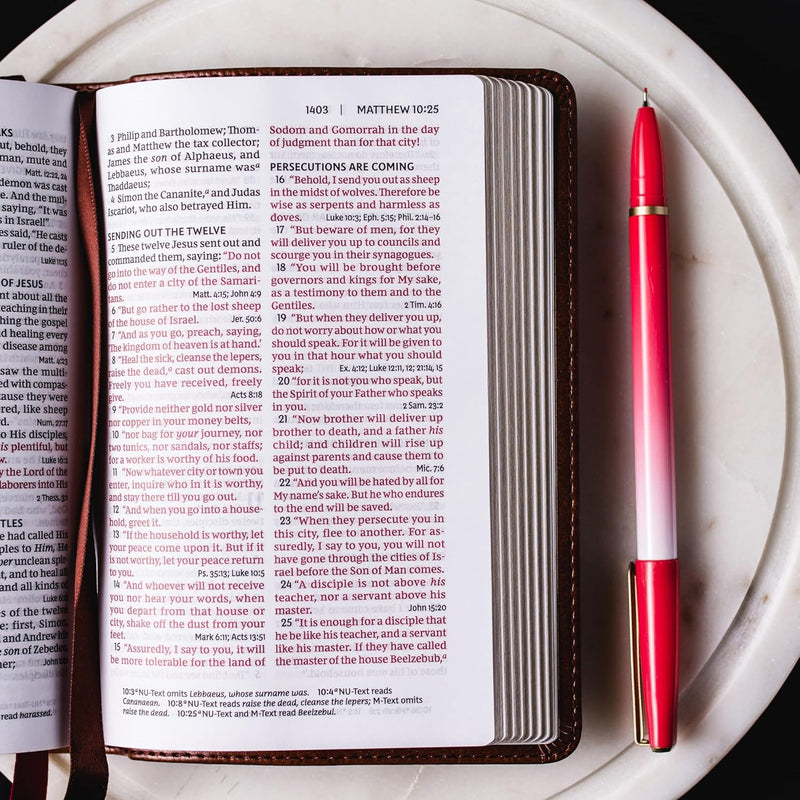 KS
ut, behold, they
man, mute and
Matt. 12:22, 24
demon was cast
ke. And the mul-
saying, "It was
s in Israel!"
es said, "He casts
ruler of the de-
Luke 11:15
OF JESUS
nt about all the
teaching in their
hing the gospel
d healing every
disease among
Matt. 4:23
saw the multi-
d with compas-
cause they were
red, like sheep
d. Num. 27:17
o His disciples;
is plentiful, but
w. Luke 10:2
y the Lord of the
laborers into His
2 Thess. 3:1
TLES
he had called His
ples to Him, He
per unclean spir-
t, and to heal all
and all kinds of
Luke 6:13
es of the twelve
e: first, Simon,
and Andrew his
son of Zebedee,
her; John 1:42
read harassed.
1403 | MATTHEW 10:25
3 Philip and Bartholomew; Thom-
as and Matthew the tax collector;
James the son of Alphaeus, and
Lebbaeus, whose surname wasa
Thaddaeus;
4 Simon the Cananite,a and Judas
Iscariot, who also betrayed Him.
SENDING OUT THE TWELVE
5 These twelve Jesus sent out and
commanded them, saying: "Do not
go into the way of the Gentiles, and
do not enter a city of the Samari-
tans. Matt. 4:15; John 4:9
6 "But go rather to the lost sheep
of the house of Israel. Jer. 50:6
7 "And as you go, preach, saying,
'The kingdom of heaven is at hand.'
8 "Heal the sick, cleanse the lepers,
raise the dead,a cast out demons.
Freely you have received, freely
give. Acts 8:18
9 "Provide neither gold nor silver
nor copper in your money belts,
10 "nor bag for your journey, nor
two tunics, nor sandals, nor staffs;
for a worker is worthy of his food.
11 "Now whatever city or town you
enter, inquire who in it is worthy,
and stay there till you go out.
12 "And when you go into a house-
hold, greet it.
13 "If the household is worthy, let
your peace come upon it. But if it
is not worthy, let your peace return
to you. Ps. 35:13; Luke 10:5
14 "And whoever will not receive
you nor hear your words, when
you depart from that house or
city, shake off the dust from your
feet. Mark 6:11; Acts 13:51
15 "Assuredly, I say to you, it will
be more tolerable for the land of
Sodom and Gomorrah in the day
of judgment than for that city!
PERSECUTIONS ARE COMING
16 "Behold, I send you out as sheep
in the midst of wolves. Therefore be
wise as serpents and harmless as
doves. Luke 10:3; Eph. 5:15; Phil. 2:14–16
17 "But beware of men, for they
will deliver you up to councils and
scourge you in their synagogues.
18 "You will be brought before
governors and kings for My sake,
as a testimony to them and to the
Gentiles. 2 Tim. 4:16
19 "But when they deliver you up,
do not worry about how or what you
should speak. For it will be given to
you in that hour what you should
speak; Ex. 4:12; Luke 12:11, 12; 21:14, 15
20 "for it is not you who speak, but
the Spirit of your Father who speaks
in you. 2 Sam. 23:2
21 "Now brother will deliver up
brother to death, and a father his
child; and children will rise up
against parents and cause them to
be put to death. Mic. 7:6
22 "And you will be hated by all for
My name's sake. But he who endures
to the end will be saved.
23 "When they persecute you in
this city, flee to another. For as-
suredly, I say to you, you will not
have gone through the cities of Is-
rael before the Son of Man comes.
24 "A disciple is not above his
teacher, nor a servant above his
master. John 15:20
25 "It is enough for a disciple that
he be like his teacher, and a servant
like his master. If they have called
the master of the house Beelzebub,a
10:3 a NU-Text omits Lebbaeus, whose surname was. 10:4 a NU-Text reads
Cananaean. 10:8 a NU-Text reads raise the dead, cleanse the lepers; M-Text omits
raise the dead. 10:25 a NU-Text and M-Text read Beelzebul.